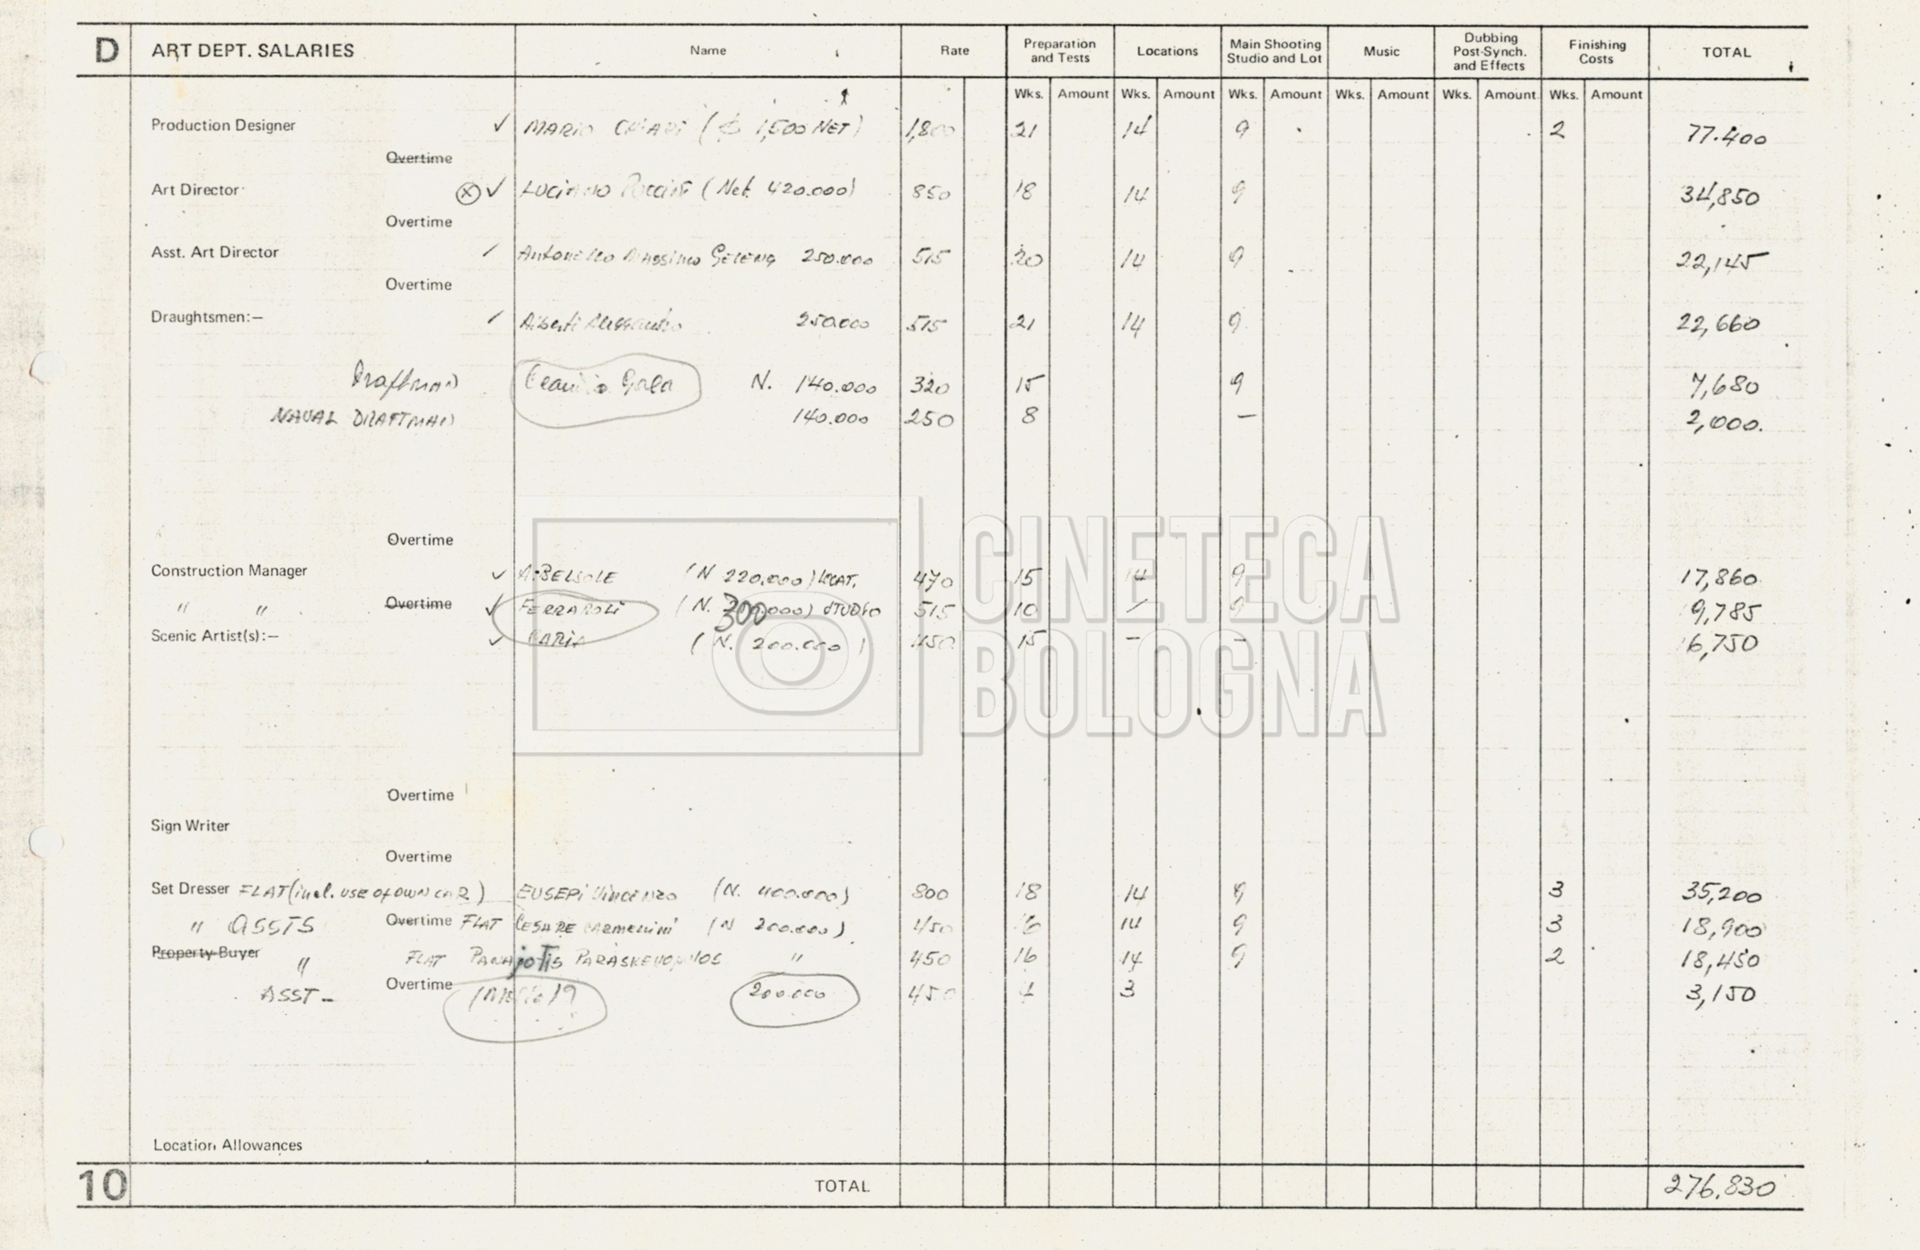 D ART DEPT. SALARIES Name Rate Preparation and Tests Locations Main Shooting Studio and Lot Music Dubbing Post-Synch. and Effects Finishing Costs TOTAL
Wks. Amount Wks. Amount Wks. Amount Wks. Amount Wks. Amount Wks. Amount
Production Designer ✓ MARIO CHIARI ($ 1,500 NET) 1,800 21 14 9 2 77.400
Overtime
Art Director ⓧ ✓ LUCIANO (Net. 420.000) 850 18 14 9 34,850
Overtime
Asst. Art Director Antonello Massimo Geleng 250.000 515 20 14 9 22,145
Overtime
Draughtsmen:— Alberti Alessandro 250.000 515 21 14 9 22,660
Draftman Claudio N. 140.000 320 15 9 7,680
NAVAL DRAFTMAN 140.000 250 8 — 2,000.
Overtime
Construction Manager ✓ (N 220.000) LOCAT. 470 15 14 9 17,860
" " Overtime ✓ FERRAROLI (N. 300.000) STUDIO 515 10 9 9,785
Scenic Artist(s):— ✓ MARIA (N. 200.000) 450 15 — — 6,750
Overtime
Sign Writer
Overtime
Set Dresser FLAT (incl. USE OF OWN CAR) EUSEPI Vincenzo (N. 400.000) 800 18 14 9 3 35,200
" ASSTS Overtime FLAT CESARE (N 200.000) 450 16 14 9 3 18,900
Property Buyer " FLAT PANAJOTIS PARASKEVOPULOS " 450 16 14 9 2 18,450
ASST — Overtime 200.000 450 4 3 3,150
Location Allowances
10 TOTAL 276.830
CINETECA
BOLOGNA